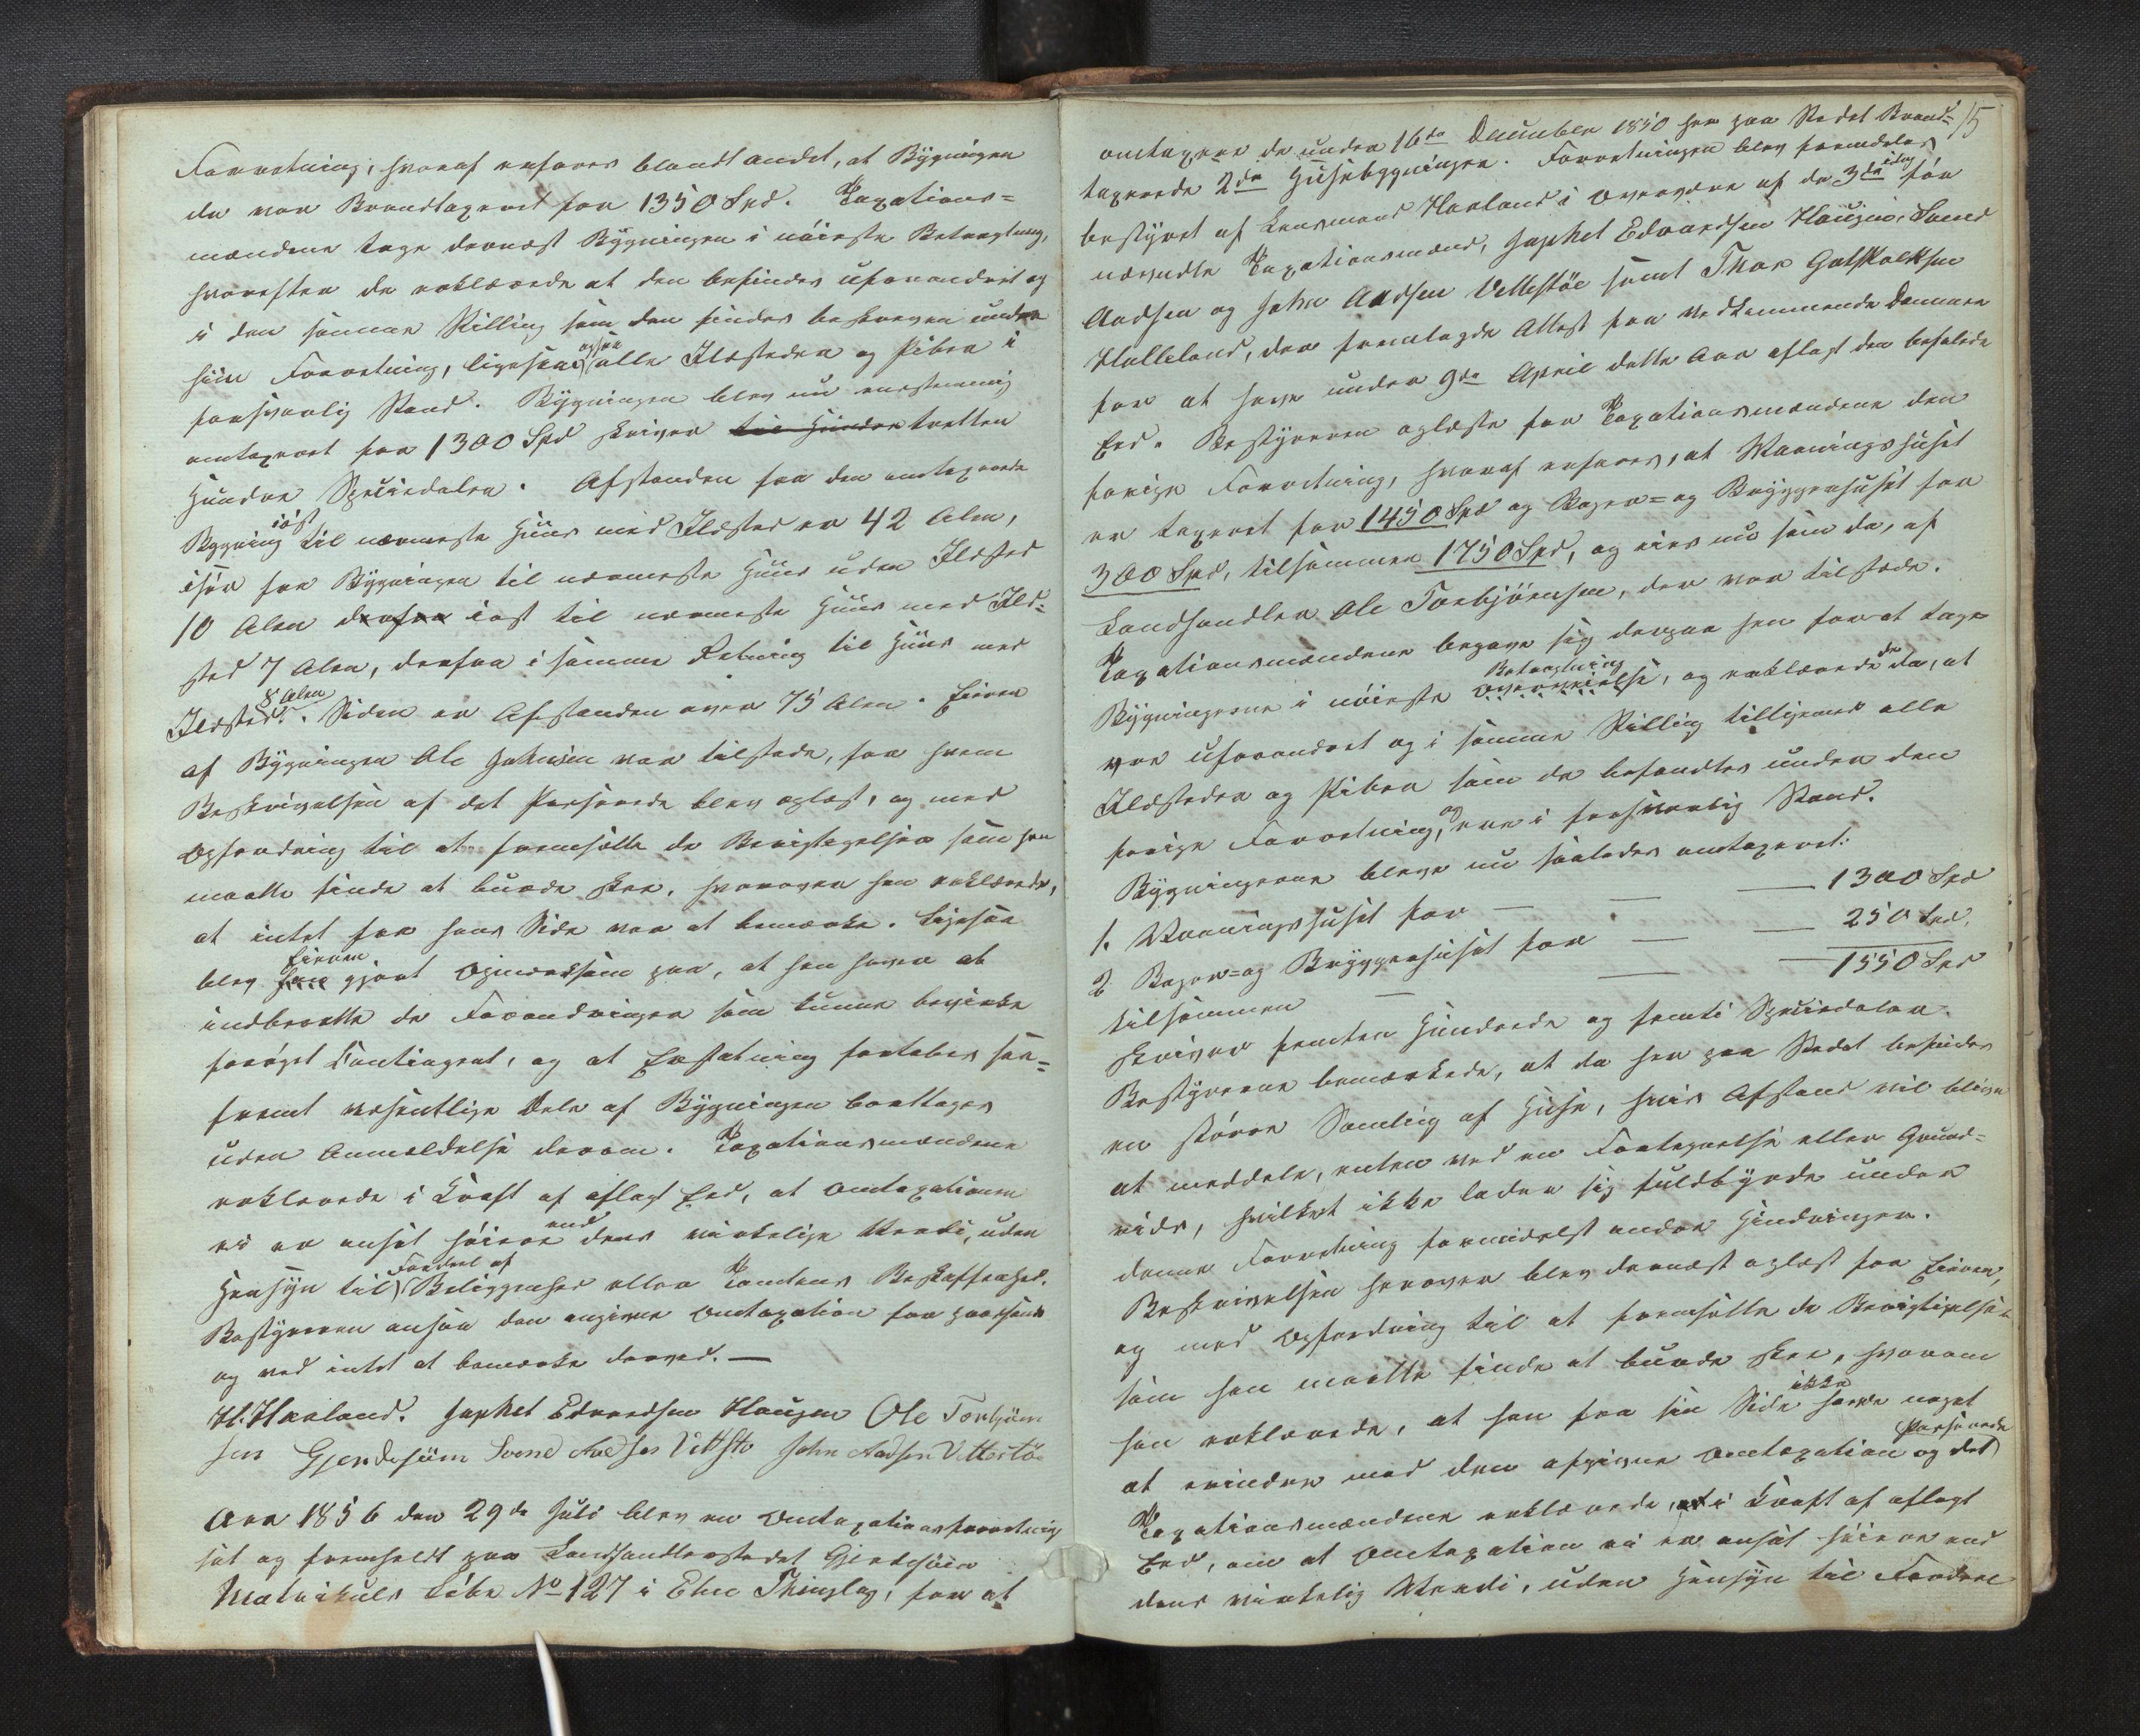 Forretning, hvoraf erfares blandt andet, at Bygningen
da var Brandtaxeret for 1350 Spd. Taxations=
mændene toge dernæst Bygningen i nøieste Betragtning,
hvorefter de erklærede at den befindes uforandret og
i den samme Stilling som den findes beskreven under
siin Forretning, ligesom ogsaa alle Ildsteder og Piber i
forsvarlig Stand. Bygningen blev nu eenstemmig
omtaxeret for 1300 Spd skriver til Hundre tretten
Hundre Speciedaler. Afstanden fra den omtaxerede
Bygning iøst til nærmeste Huus med Ildsted er 42 Alen,
isør fra Bygningen til nærmeste Huus uden Ildsted
10 Alen derfra iøst til nærmeste Huus med Ild=
sted 7 Alen, derfra i samme Retning til Huus med
Ildsted 8 Alen. Siden er Afstanden over 75 Alen. Eieren
af Bygningen Ole Johnsen var tilstede, for hvem
Beskrivelsen af det Passerede blev oplæst, og med
Opfordring til at fremsætte de Berigtigelser som han
maatte finde at burde skee, hvorover han erklærede,
at intet fra hans Side var at bemærke. Ligesaa
blev han Eieren gjort Opmærksom paa, at han haver at
indberette de Forandringer som kunne bevirke
forøget Contingent, og at Erstatning fortabes saa=
fremt væsentlige Dele af Bygningen borttages
uden Anmældelse derom. Taxationsmændene
erklærede i Kraft af aflagt Eed, at Omtaxationen
ei er ansat høiere end dens virkelige Værdi, uden
Hensyn til Fordeel af Beliggenhed eller Tomtens Beskaffenhed.
Bestyreren ansaa den angivne Omtaxation for passende
og ved intet at bemærke derved. —
H. Haaland. Japhet Edvardsen Haugen Ole Torbjørn
sen Gjerdesiim Svend Aadsen Vettestø John Aadsen Vettestø
Aar 1856 den 29de Juli blev en Omtaxationsforretning
sat og fremholdt paa Landhandlerstedet Gjerdesiim
Matrikuls Løbe No 127 i Etne Thinglag, for at
15
omtaxere de under 16de December 1850 her paa Stedet Brand=
taxerede 2de Husebygninger. Forretningen blev fremdeles
bestyret af Lensmand Haaland i Overvære af de 3de idag før
nævndte Taxationsmænd, Japhet Edvardsen Haugen, Svend
Aadsen og John Aadsen Vettestøe samt Thor Gotskalksen
Halleland, der fremlagde Attest fra vedkommende Dommer
for at have under 9de April dette Aar aflagt den befalede
Eed. Bestyreren oplæste for Taxationsmændene den
forige Forretning, hvoraf erfares, at Vaaningshuset
er taxeret for 1450 Spd og Bager= og Bryggerhuset for
300 Spd, tilsammen 1750 Spd, og eies nu som da, af
Landhandler Ole Torbjørnsen, der var tilstæde.
Taxationsmændene begave sig derpaa hen for at tage
Bygningerne i nøieste Overveielse Betragtning, og erklærede de da, at
være uforandret og i samme Stilling tilligemed alle
Ildsteder og Piber som de befandtes under den
forige Forretning, og ere i forsvarlig Stand.
Bygningerne bleve nu saaledes omtaxeret:
1. Vaaningshuset for — — — 1300 Spd
2 Bager= og Bryggerhuset for — — 250 Spd,
tilsammen — — — 1550 Spd
skriver femten Hundrede og femti Speciedaler.
Bestyreren bemærkede, at da her paa Stedet befindes
en større Samling af Huse, hvis Afstand vil blive
at meddele, enten ved en Fortegnelse eller Grund=
rids, hvilket ikke lader sig fuldbyrde under
denne Forretning formedelst andre Hindringer.
Beskrivelsen herover blev dernæst oplæst for Eieren,
og med Opfordring til at fremsætte de Berigtigelser
som han maatte finde at burde skee, hvorom
han erklærede, at han fra sin Side ikke havde noget
at erindre mod den afgivne Omtaxation og det Passerede
Taxationsmændene erklærede, at i Kraft af aflagt
Eed, om at Omtaxation ei er ansat høiere end
dens virkelig Værdi, uden Hensyn til Fordeel